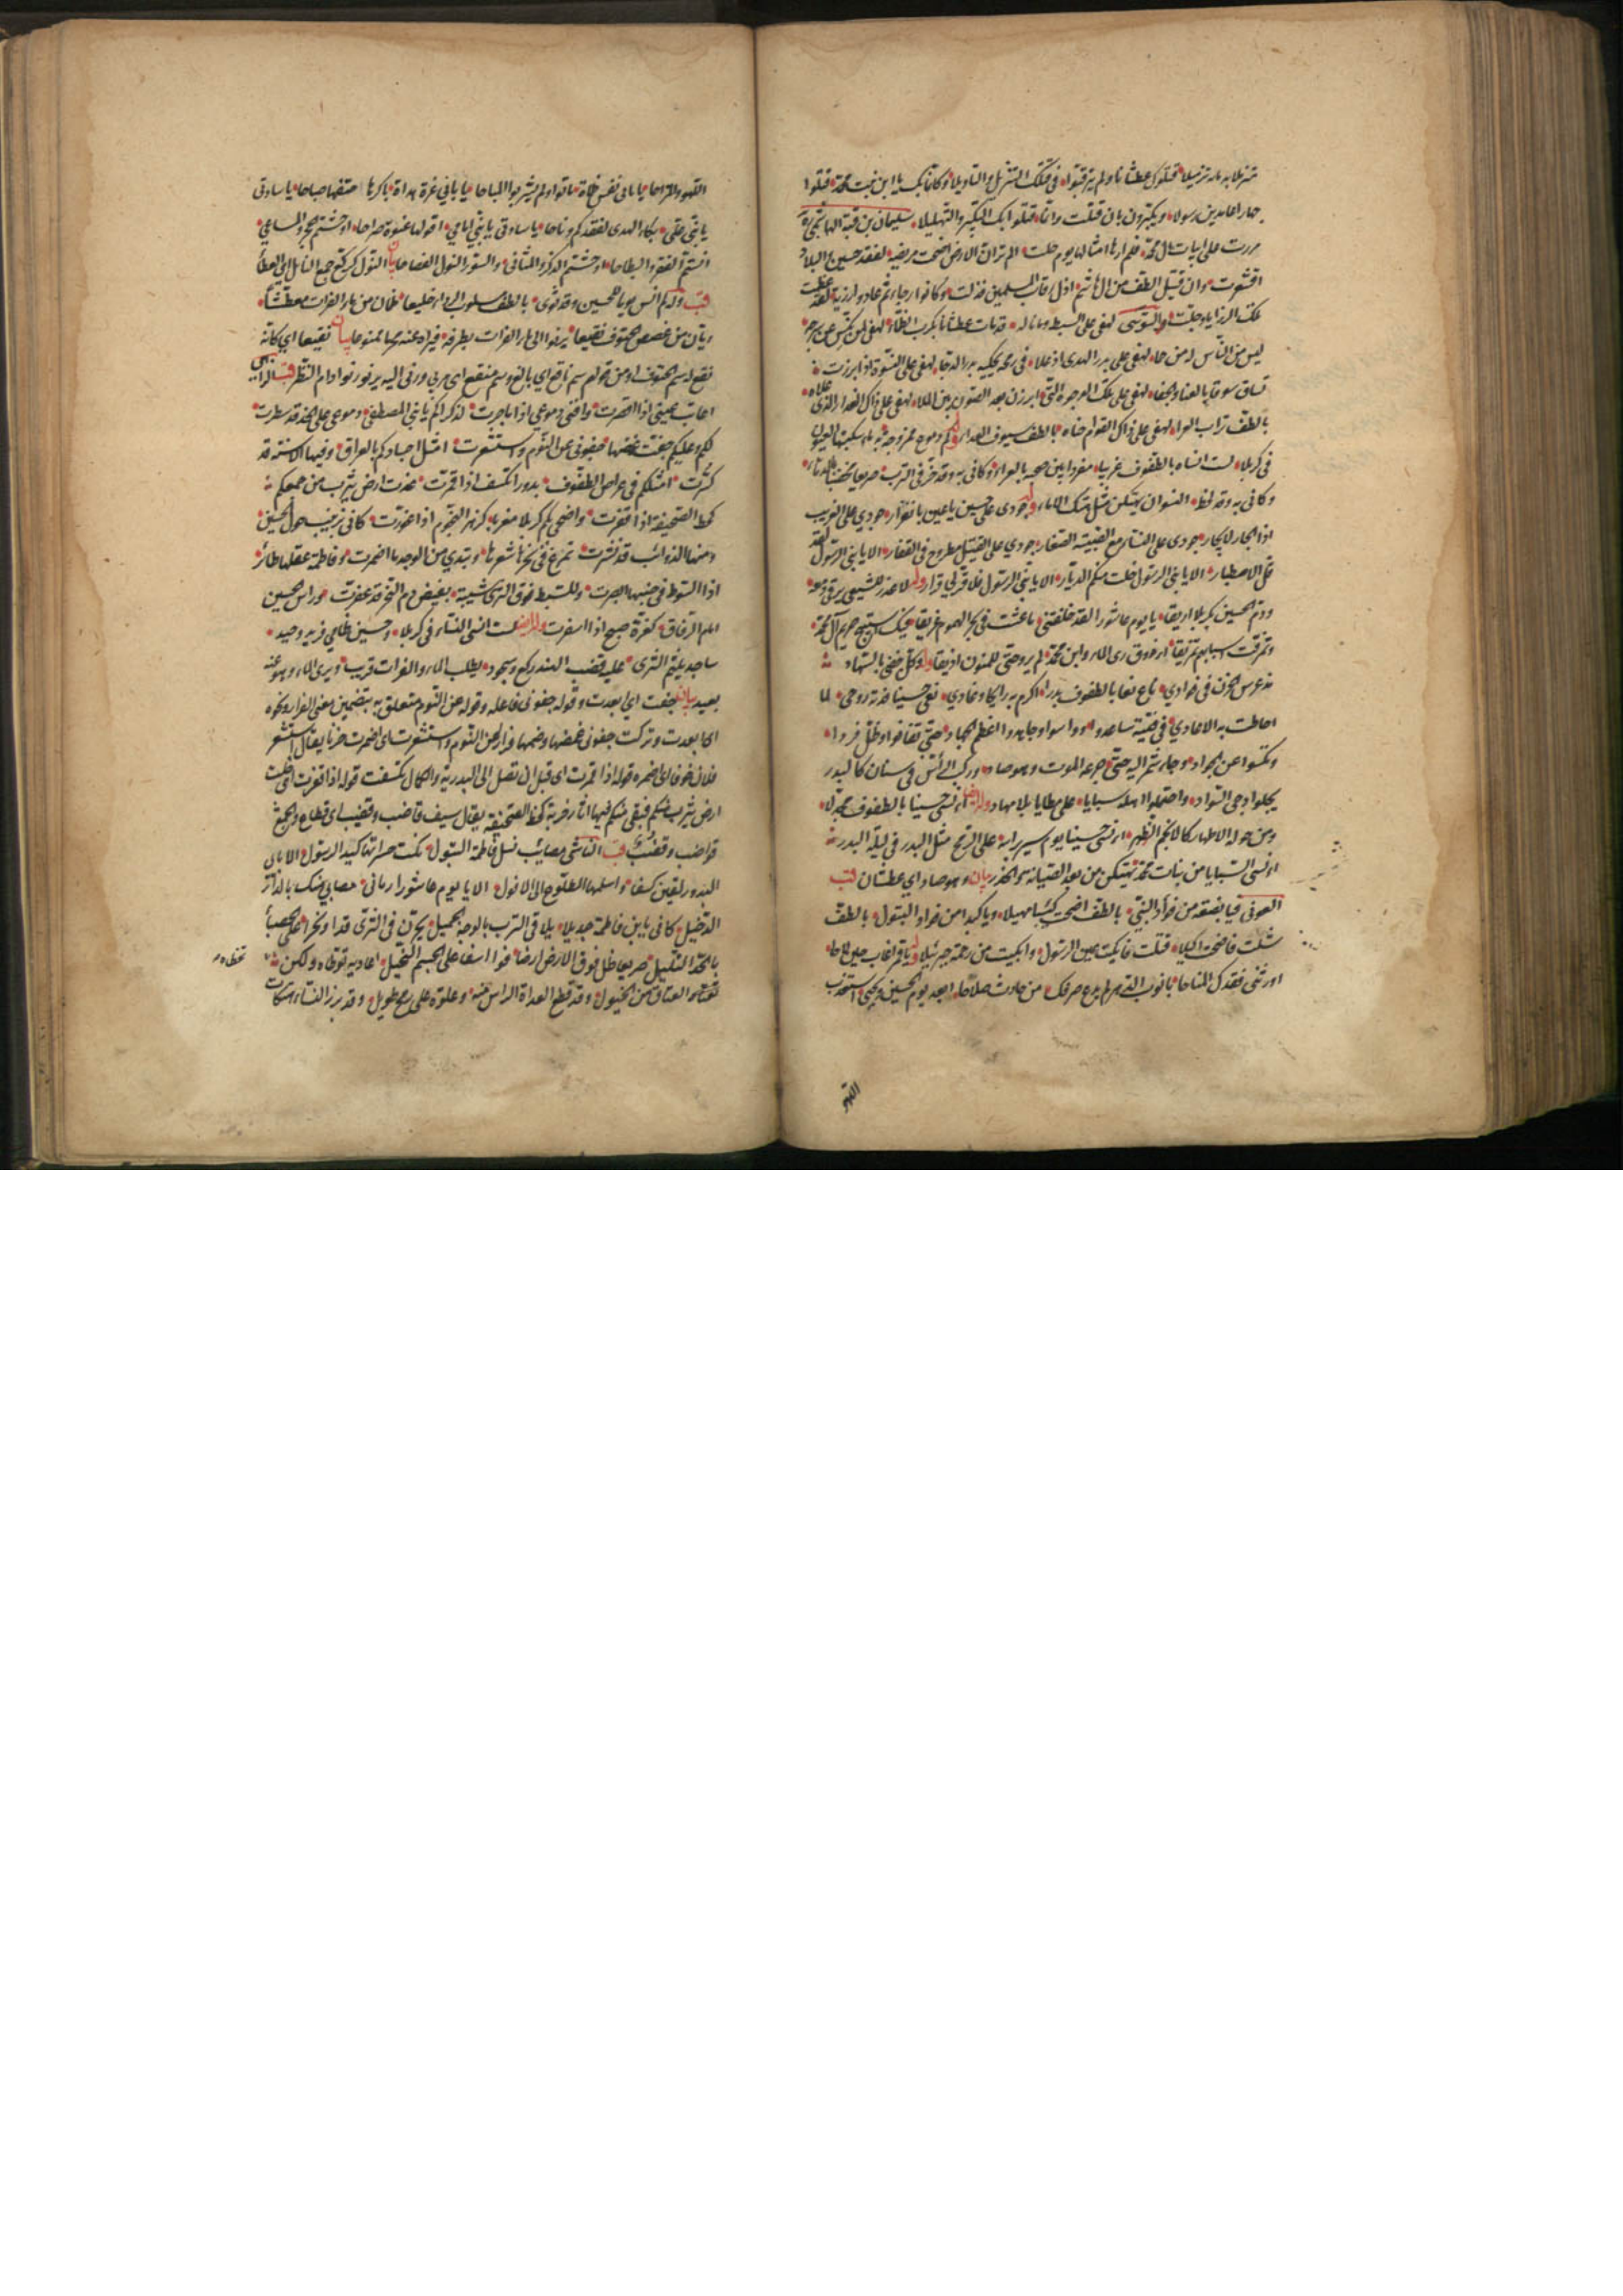 متزملا بدمائه تزميلا قتلوك عطشانا ولم يترقبوا في قتلك التنزيل والتأويلا وكانما بك يا ابن بنت محمد قتلوا
جهارا عامدين رسولا ويكبرون بان قتلت وانما قتلوا بك التكبير والتهليلا سليمان بن قتة الهاشمي
مررت على ابيات ال محمد فلم ارها امثالها يوم حلت الم تر ان الارض اضحت مريضة لفقد حسين والبلاد
اقشعرت وان قتيل الطف من ال هاشم اذل رقاب المسلمين فذلت وكانوا رجاء ثم عادوا رزية لقد عظمت
تلك الرزايا وجلت والسوسي لهفي على السبط وما ناله قد مات عطشانا بكرب الظما لهفي لمن نكس عن سرجه
ليس من الناس له من حما لهفي على بدر الهدى اذ علا في رمحه يحكيه بدر الدجا لهفي على النسوة اذ ابرزت
تساق سوقا بالعنا والجفا لهفي على تلك الوجوه التي ابرزن بعد الصون بين الملا لهفي على ذاك العذار الذي علاه
بالطف تراب العرا لهفي على ذاك القوام حناه بالطف سيوف العدا وله كم دموع ممزوجة بدماء سكبتها العيون
في كربلا لست انساه بالطفوف غريبا مفردا بين صحبه بالعراء وكاني به وقد خر في الترب صريعا مخضبا بالدماء
وكاني به وقد لحظ النسوان يهتكن مثل هتك الاماء وله جودي على حسين يا عين بانغزار جودي على الغريب
اذ الجار لا يجار جودي على النساء مع الصبية الصغار جودي على القتيل مطروح في القفار الا يا بني الرسول لقد
قل الاصطبار الا يا بني الرسول خلت منكم الديار الا يا بني الرسول فلا قر لي قرار وله لا عذر للشيعي يرقى دمعه
ودم الحسين بكربلا اريقا يا يوم عاشورا لقد خلفتني ما عشت في بحر الهموم غريقا فيك استبيح حريم ال محمد
وتمزقت اسبابهم تمزيقا اذوق ري الماء وابن محمد لم يرو حتى للمنون اذيقا وله وكل جفني بالسهاد
مذ عرس الحزن في فوادي ناع نعا بالطفوف بدرا اكرم به رايحا وغادي نعى حسينا فدته روحي لما
احاطت به الاعادي في فتية ساعدوا وواسوا وجاهدوا اعظم الجهاد حتى تفانوا وظل فردا
ونكسوا عن الجواد وجاء شمر اليه حتى جرعه الموت وهو صاد وركب الراس في سنان كالبدر
يجلو ادجى السواد واحتملوا اهله سبايا على مطايا بلا مهاد وله ايضا اانسى حسينا بالطفوف مجدلا
ومن حوله الاطهار كالانجم الزهر اانسى حسينا يوم سير براسه على الرمح مثل البدر في ليلة البدر
اانسى السبايا من بنات محمد يهتكن من بعد الصيانة والخدر بيان وهو صاد اي عطشان قب
العوني فيا بضعة من فواد النبي بالطف اضحت كثيبا مهيلا ويا كبدا من فواد البتول بالطف
شلت فاضحت اكيلا قتلت فابكيت عين الرسول وابكيت من رحمة جبرئيلا وله يا قمرا غاب حين لاحا
اورثني فقدك المناحا يا نوب الدهر لم يدع صرفك من حادث صلاحا ابعد يوم الحسين ويحي استعذب
اللهو
اللهو والمزاحا يا بابي انفس ظماة ماتوا ولم يشربوا المباحا يا بابي غرة هداة باكرها حتفها صباحا يا سادتي
يا بني علي بكا الهدى لفقدكم وناحا يا سادتي يا بني امامي اقولها عنوة صراحا اوحشتم الحجر والمساعي
انستم القفر والبطاحا اوحشتم الذكر والمثاني والسور النول الفصاحا بيان النول كركع جمع النايل اي العطاء
قب وله لم انس يوما للحسين وقد ثوى بالطف مسلوب الرداء خليعا ظمآن من ماء الفرات معطشا
ريان من غصص الحتوف نقيعا يرنو الى ماء الفرات بطرفه فيراه عنه محرما ممنوعا بيان نقيعا اي كانه
نقع له سم الحتوف او من قولهم سم ناقع اي بالغ وسم منقع اي مربى ورنى اليه يرنو رنوا ادام النظر قب الزاهي
اعاتب عيني اذا اقصرت وافني دموعي اذا ما جرت لذكراكم يا بني المصطفى دموعي على الخد قد سطرت
لكم وعليكم جفت غمضها جفوني عن النوم واستشعرت امثل اجسادكم بالعراق وفيها الاسنة قد
كسرت امثلكم في عراص الطفوف بدورا تكسف اذ اقمرت غدت ارض يثرب من جمعكم
كخط الصحيفة اذ اقفرت واضحى بكم كربلا مغربا كزهر النجوم اذا غورت كاني بزينب حول الحسين
ومنها الذوائب قد نشرت تمرغ في نحره شعرها وتبدي من الوجد ما اضمرت وفاطمة عقلها طائر
اذا السوط في جنبها ابصرت وللسبط فوق الثرى شيبة بفيض دم النحر قد عفرت وراس الحسين
امام الرفاق كغرة صبح اذا اسفرت وله ايضا لست انسى النساء في كربلا وحسين ظامي فريد وحيد
ساجد يلثم الثرى عليه وقضب الهند ركع وسجود يطلب الماء والفرات قريب ويرى الماء وهو عنه
بعيد بيان جفت اي ابعدت وقوله جفوني فاعله وقوله عن النوم متعلق به بتضمين معنى الفرار ونحوه
اي ابعدت وتركت جفوني غمضها وضمها فرارا عن النوم واستشعرت اي اضمرت حزنا يقال استشعر
فلان خوفا اي اضمره قوله اذ اقمرت اي قبل ان تصل الى البدرية والكمال تكسفت قوله اذ اقفرت اي خلت
ارض يثرب منكم فبقي منكم فيها اثار خربة كخط الصحيفة يقال سيف قاضب وقضيب اي قطاع والجمع
قواضب وقضب قب الناشي مصائب نسل فاطمة البتول نكت حسراتها كبد الرسول الا بابي
البدور لقين كسفا واسلمها الطلوع الى الافول الا يا يوم عاشورا رماني مصابي منك بالداء
الدخيل كاني بابن فاطمة جديلا يلاقي الترب بالوجه الجميل يجرن في الثرى قدا ونحرا على الحصباء
بالخد التليل صريعا ظل فوق الارض ارضا فوا اسفا على الجسم النحيل اعاديه توطاه ولكن
تخطاه العتاق من الخيول وقد قطع العداة الراس منه وعلوه على رمح طويل وقد برز النساء مهتكات
تخطاه